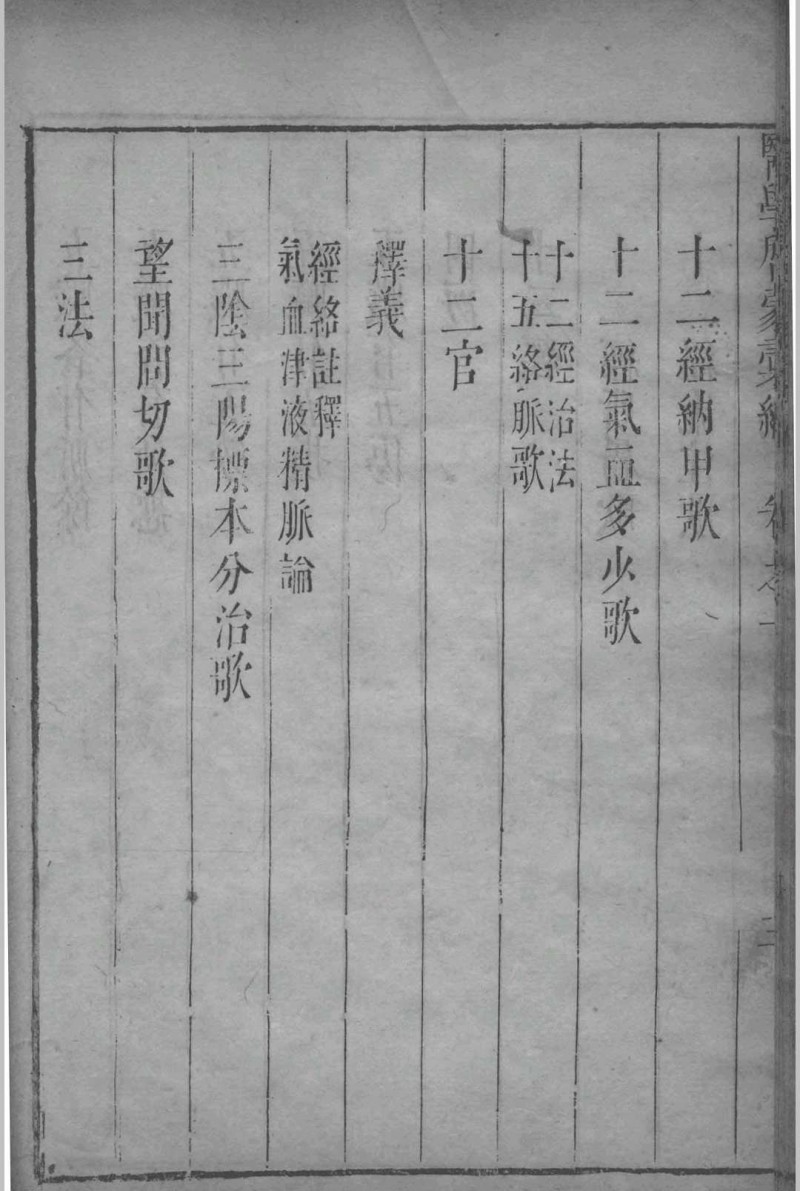 十二經納甲歌
十二經氣血多少歌
十二經治法
十五絡脈歌
十二官
釋義
經絡註釋
氣血津液精脈論
三陰三陽標本分治歌
望聞問切歌
三法